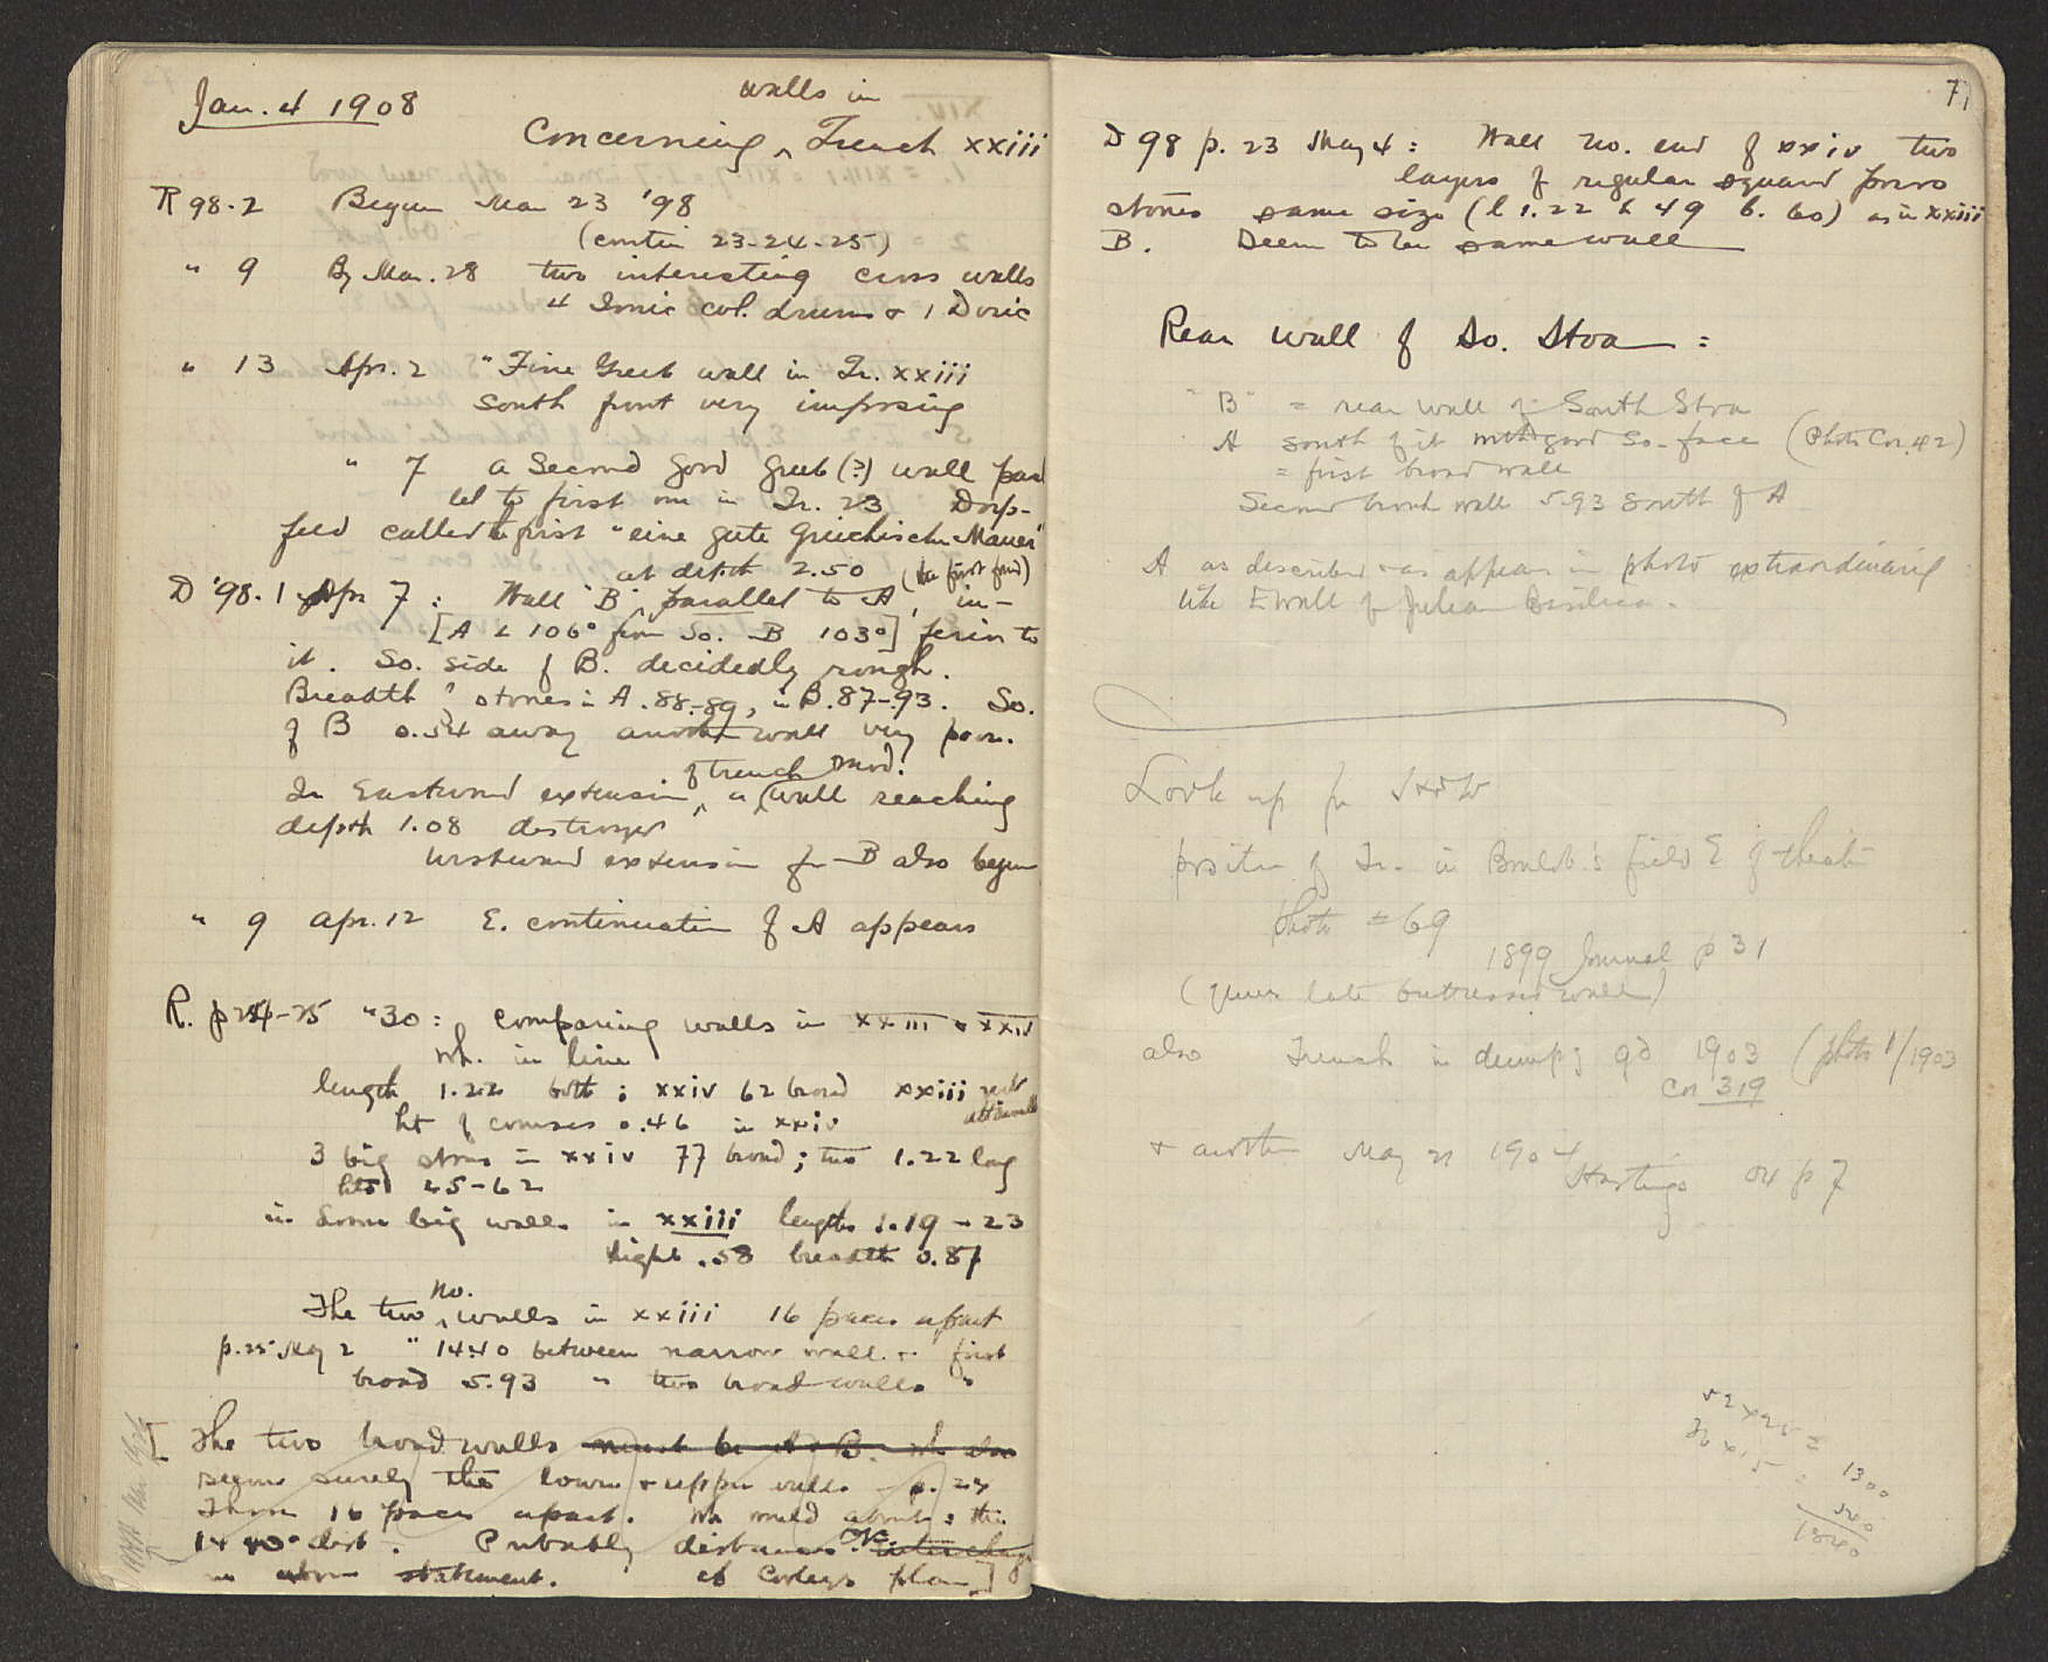 Jan. 4 1908
walls in
Concerning ^ Trench xxiii
R 98.2 Begun Mar 23 '98
(contin 23-24-25)
" 9 By Mar. 28 two interesting cross walls
4 Ionic col. drums & 1 Doric
" 13 Apr. 2 "Fine Greek wall in Tr. xxiii
South front very imposing
" 7 a Second good Greek (?) wall paral
lel to first one in Tr. 23 Dorp-
feld called first "eine gute Griechische Mauer"
at depth 2.50 (the first find)
D '98.1 Apr 7: Wall "B", parallel to A, in-
[A L 106° from So. B 103°] ferior to
it. So. side of B. decidedly rough.
Breadth of stones in A .88-.89, in B .87-.93. So.
of B 0.54 away another wall very poor.
of trench mod.
In Eastward extension ^ a (wall reaching
depth 1.08 destroyed
Westward extension for B also begun
" 9 Apr. 12 E. continuation of A appears
R. p 24-25 "30: comparing walls in xxiii & xxiv
wh. in line
length 1.22 both; xxiv 62 broad xxiii not
ht of courses 0.46 in xxiv
3 big stones in xxiv 77 broad; two 1.22 long
hts 45-62
in Some big walls in xxiii lengths 1.19-23
hight .58 breadth 0.87
no.
The two ^ walls in xxiii 16 paces apart
p. 25 May 2 " 14.40 between narrow wall & first
broad 5.93 " two broad walls "
[The two broad walls must be A & B. wh also
seems surely the lower & upper walls p. 24
These 16 paces apart. the
14.40 dist. Probably distances interchanged
in above statement. cf Cooley's plan]
7
D 98 p. 23 May 4: Wall no. end of xxiv two
layers of regular squared poros
stones same size (l 1.22 h 49 b. 60) as in xxiii
B. Seem to be same wall
Rear wall of So. Stoa:
"B" = rear wall of South Stoa
A south of it with good So. face (Photo Cor. 42)
= first broad wall
Second broad wall 5.93 South of A
A as described & as appears in photo extraordinarily
like E wall of Julian Basilica.
Look up for
position of Tr. in field E of theatre
photo 69
1899 Journal p 31
( late buttressed wall)
also Trench in dump; 1903 (photo 1/1903
Cor 319
& another May 21 1904
Hastings 04 p 7
52 x 25 =
1300
540
1840